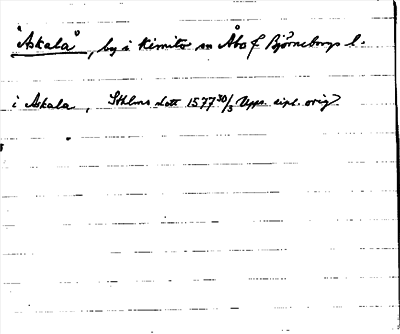 "Askala", by i Kimito sn Åbo f Björneborgs l.
i Askala, Sthlms slott 1577 30/5 Upps. dipl. orig